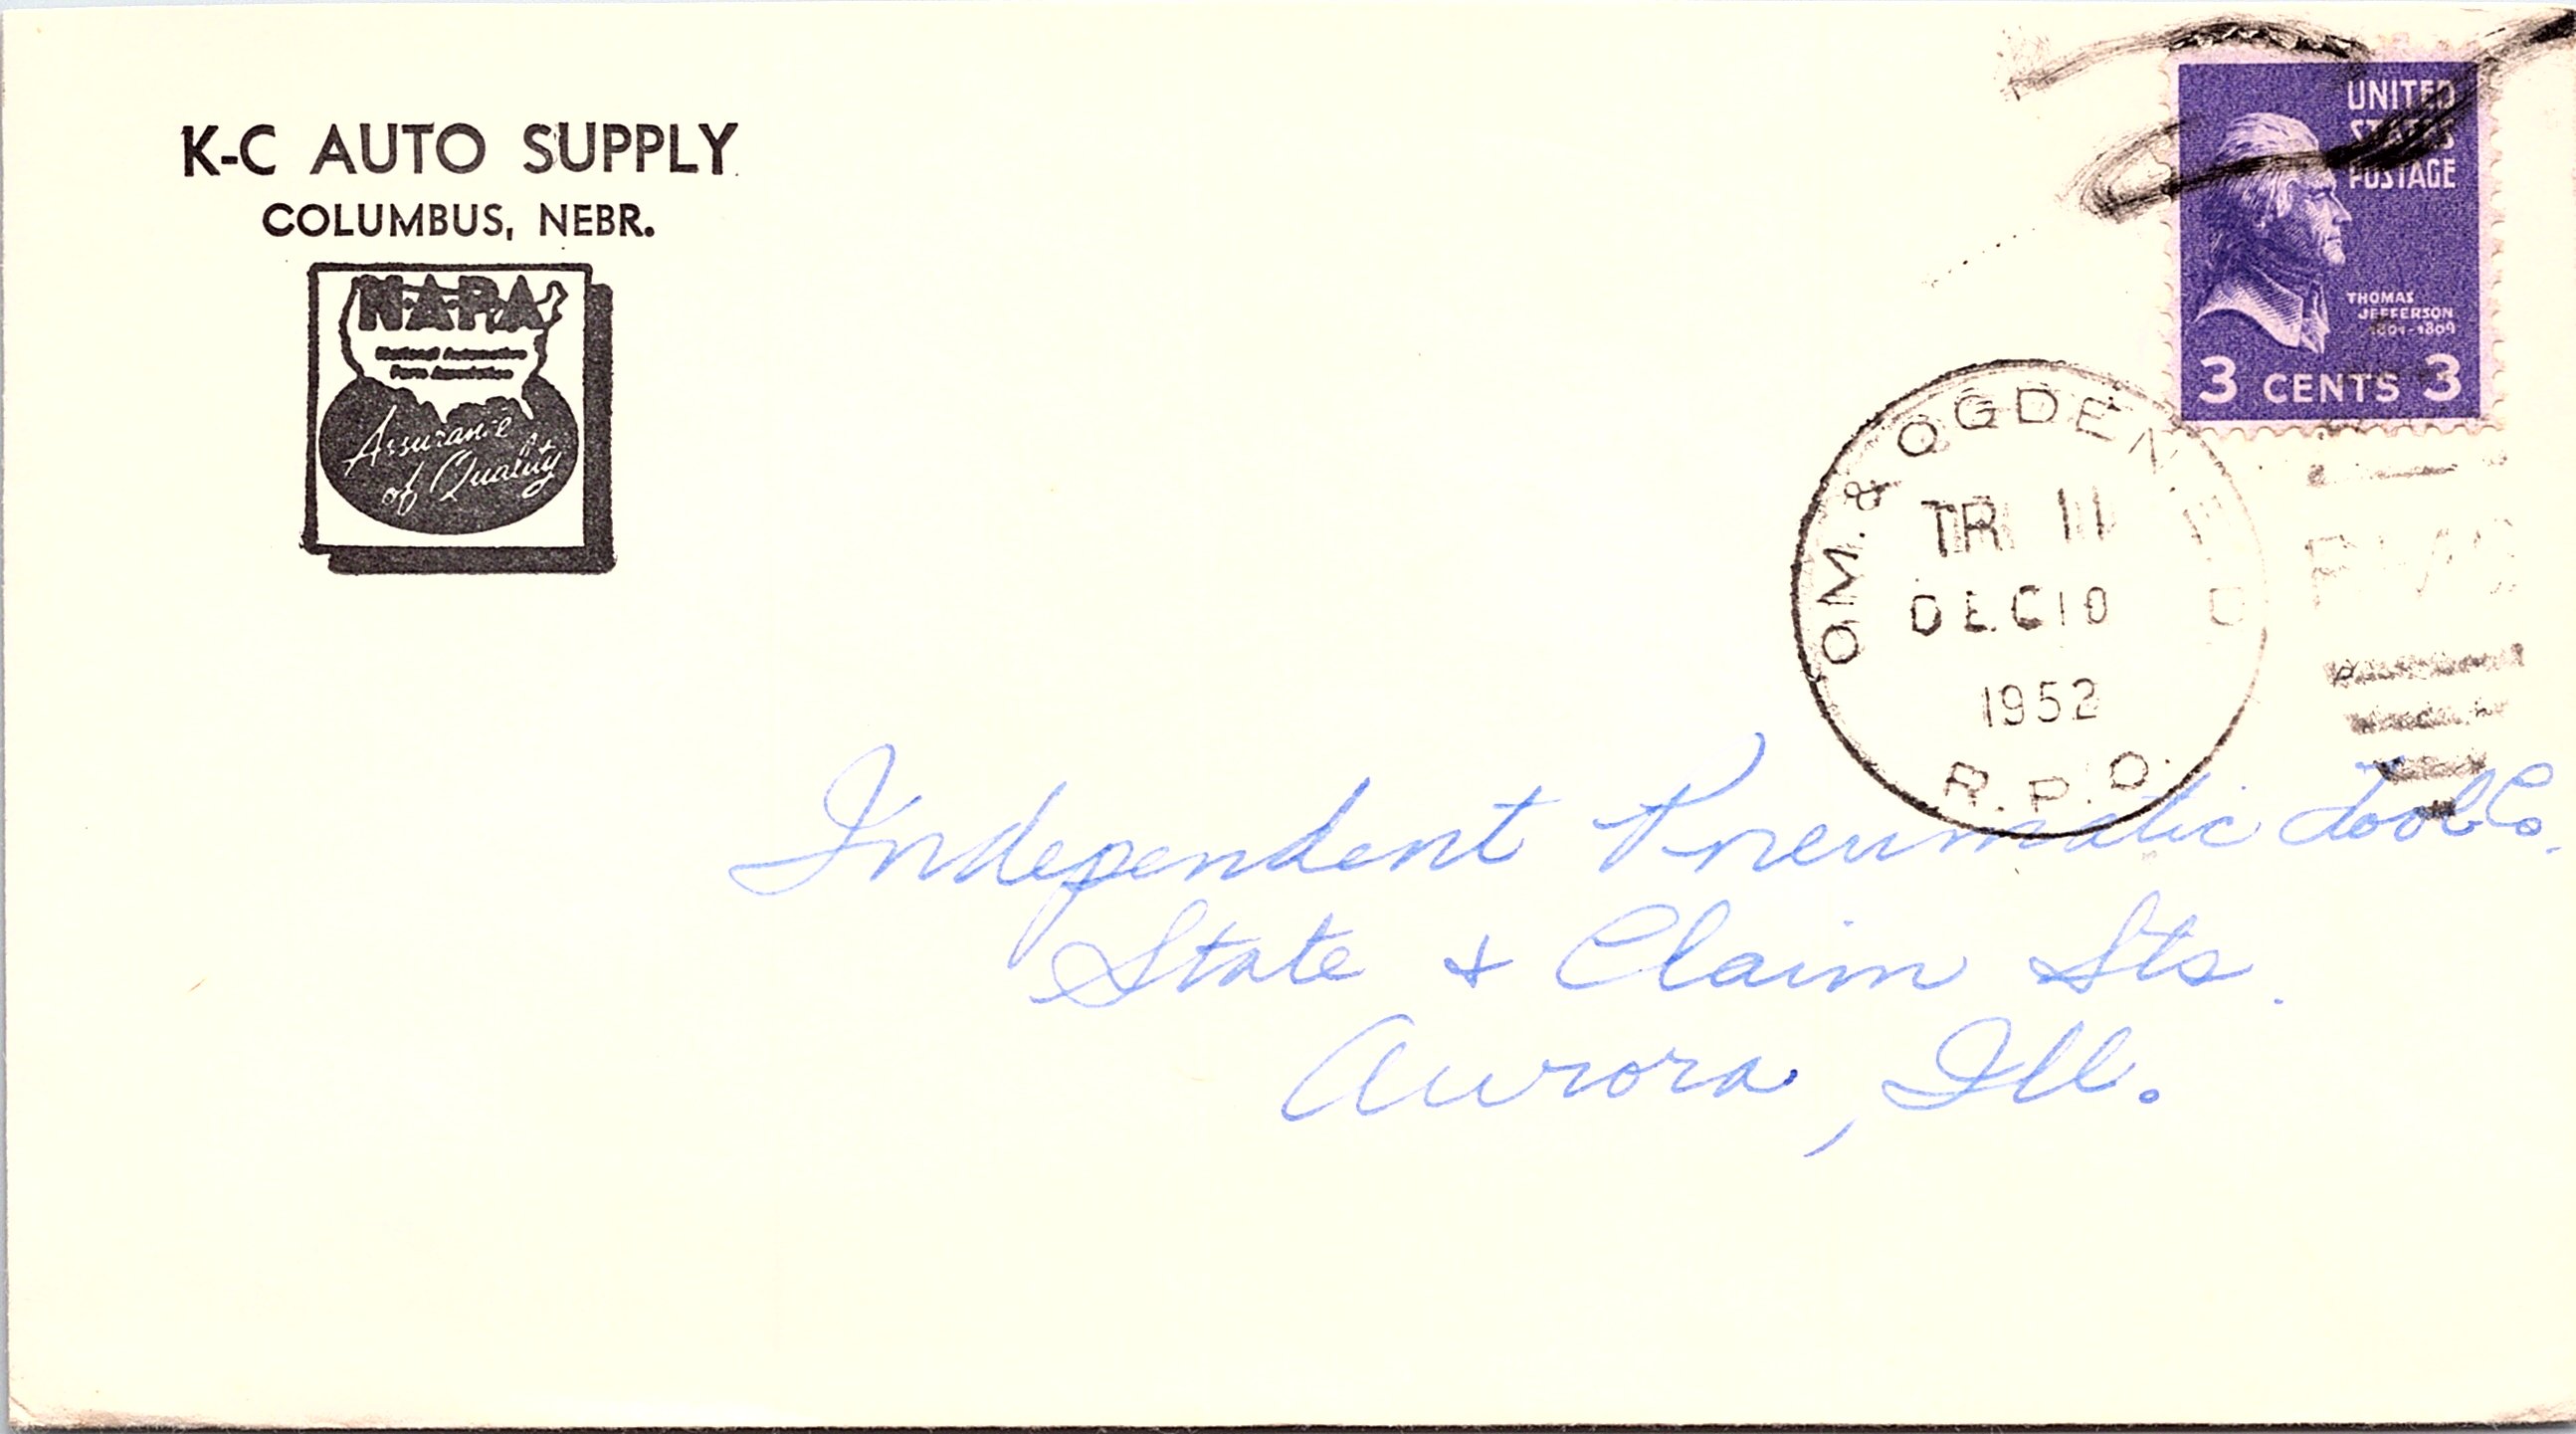 K-C AUTO SUPPLY
COLUMBUS, NEBR.
NAPA
National Automotive
Parts Association
Assurance
of Quality
UNITED
STATES
POSTAGE
THOMAS
JEFFERSON
1801-1809
3 CENTS 3
OM. & OGDEN
TR 11
DEC 10
1952
R.P.O.
Independent Pneumatic Tool Co.
State & Claim Sts.
Aurora, Ill.